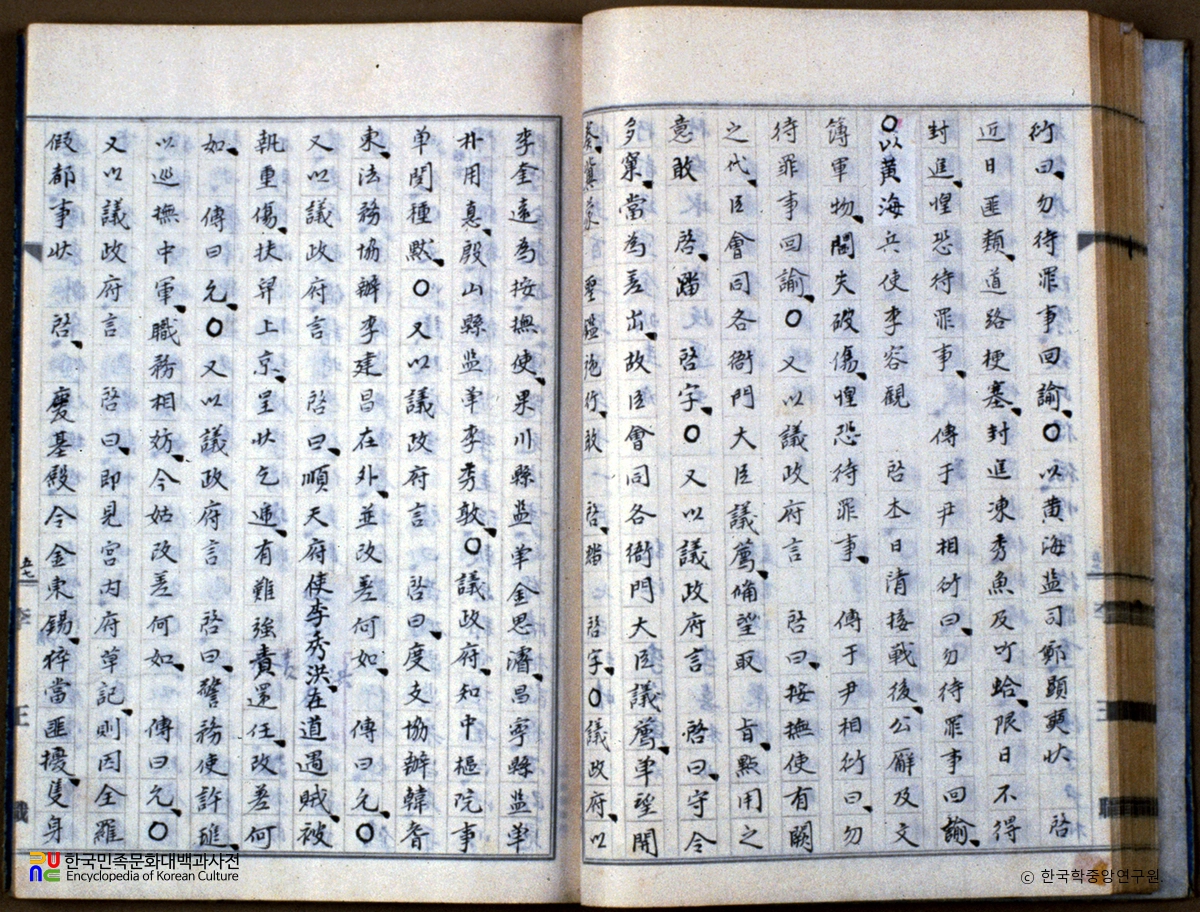 衍曰、勿待罪事回諭、○以黃海監司鄭顯奭狀 啓
近日匪類、道路梗塞、封進凍秀魚及吖蛤、限日不得
封進、惶恐待罪事、 傳于尹相衍曰、勿待罪事回諭、
○以黃海兵使李容觀 啓本日淸接戰後、公廨及文
簿軍物、閪失破傷、惶恐待罪事、 傳于尹相衍曰、勿
待罪事回諭、○又以議政府言 啓曰、按撫使有闕
之代、臣會同各衙門大臣議薦、備望取 旨、點用之
意敢 啓、踏 啓字、○又以議政府言 啓曰、守令
多窠、當爲差出、故臣會同各衙門大臣議薦、單望開
 啓、踏 啓字、○議政府、以
李奎遠爲按撫使、果川縣監單金思濬、昌寧縣監單
朴用憙、殷山縣監單李秀敦、○議政府、知中樞院事
單閔種默、○又以議政府言 啓曰、度支協辦韓耆
東、法務協辦李建昌在外、並改差何如、 傳曰允、○
又以議政府言 啓曰、順天府使李秀洪、在道遇賊、被
執重傷、扶舁上京、呈狀乞遞、有難強責還任、改差何
如、 傳曰允、○又以議政府言 啓曰、警務使許璡、
以巡撫中軍、職務相妨、今姑改差何如、 傳曰允、○
又以議政府言 啓曰、卽見宮內府草記、則因全羅
假都事狀 啓、 慶基殿令金東錫、猝當匪擾、隻身
五七
한국민족문화대백과사전
Encyclopedia of Korean Culture
ⓒ 한국학중앙연구원.